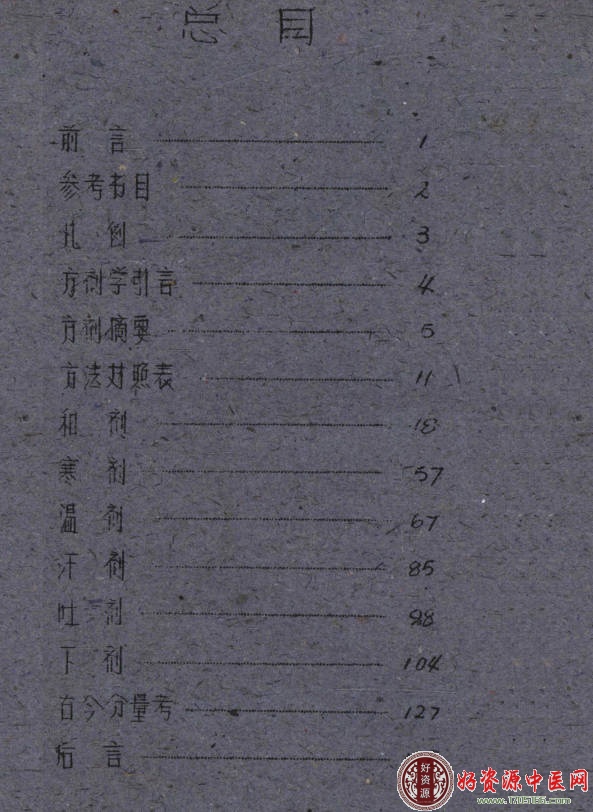 总 目
前 言 1
参考书目 2
凡 例 3
方剂学引言 4
方剂摘要 5
方法对照表 11
和 剂 18
寒 剂 57
温 剂 67
汗 剂 85
吐 剂 98
下 剂 104
古今分量考 127
后 言
好资源 好资源中医网